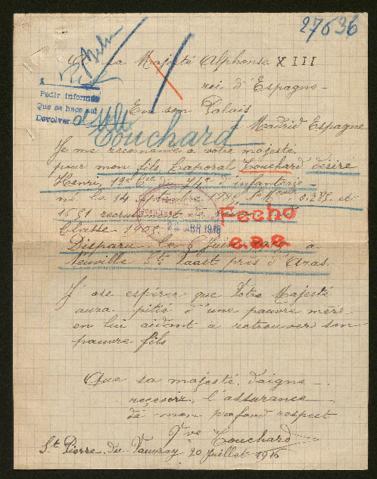 27636
Sa Majesté Alphonse XIII
roi d'Espagne
En son Palais
Madrid Espagne
Pedir informes
Que se hace así
Devolver
Touchard
Je me recommande à votre majesté
pour mon fils Caporal Touchard Désiré
Henri, d'infanterie
né le 14
Classe 1905
Fecho
ABR 1916
Disparu le 6 Juin à
Neuville St Vaast près d'Aras.
J'ose espérer que Votre Majesté
aura pitié d'une pauvre mère
en lui aidant à retrouver son
pauvre fils
Que sa majesté daigne
recevoir l'assurance
de mon profond respect
Vve Touchard
St Pierre du Vauvray 20 juillet 1916